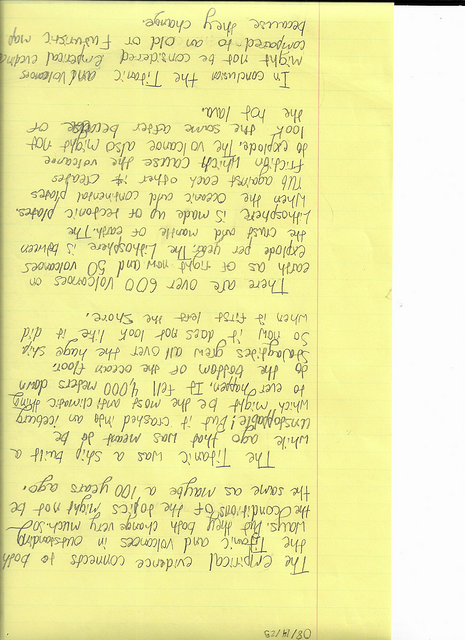 The empirical evidence connects to both
the Titanic and volcanoes in outstanding
ways. but they both change very much. So
the conditions of the topics might not be
the same as maybe a 100 years ago.
The Titanic was a ship built a
while ago that was meant to be
unstoppable! But it crashed into an iceberg
which might be the most anticlimatic thing
to ever happen. It fell 4,000 meters down
to the bottom of the ocean floor.
grew all over the huge ship
So now it does not look like it did
when it first left the shore.
There are over 600 volcanoes on
earth as of right now and 50 volcanoes
explode per year. The Lithosphere is between
the crust and mantle of earth. The
Lithosphere is made up of tectonic plates.
When the oceanic and continental plates
rub against each other it creates
friction which cause the volcanoe
to explode. The volcanoe also might not
look the same after because of
the hot lava.
In conclusion the Titanic and Volcanoes
might not be considered Empirical evidence
compared to an old or Futuristic map
because they change.